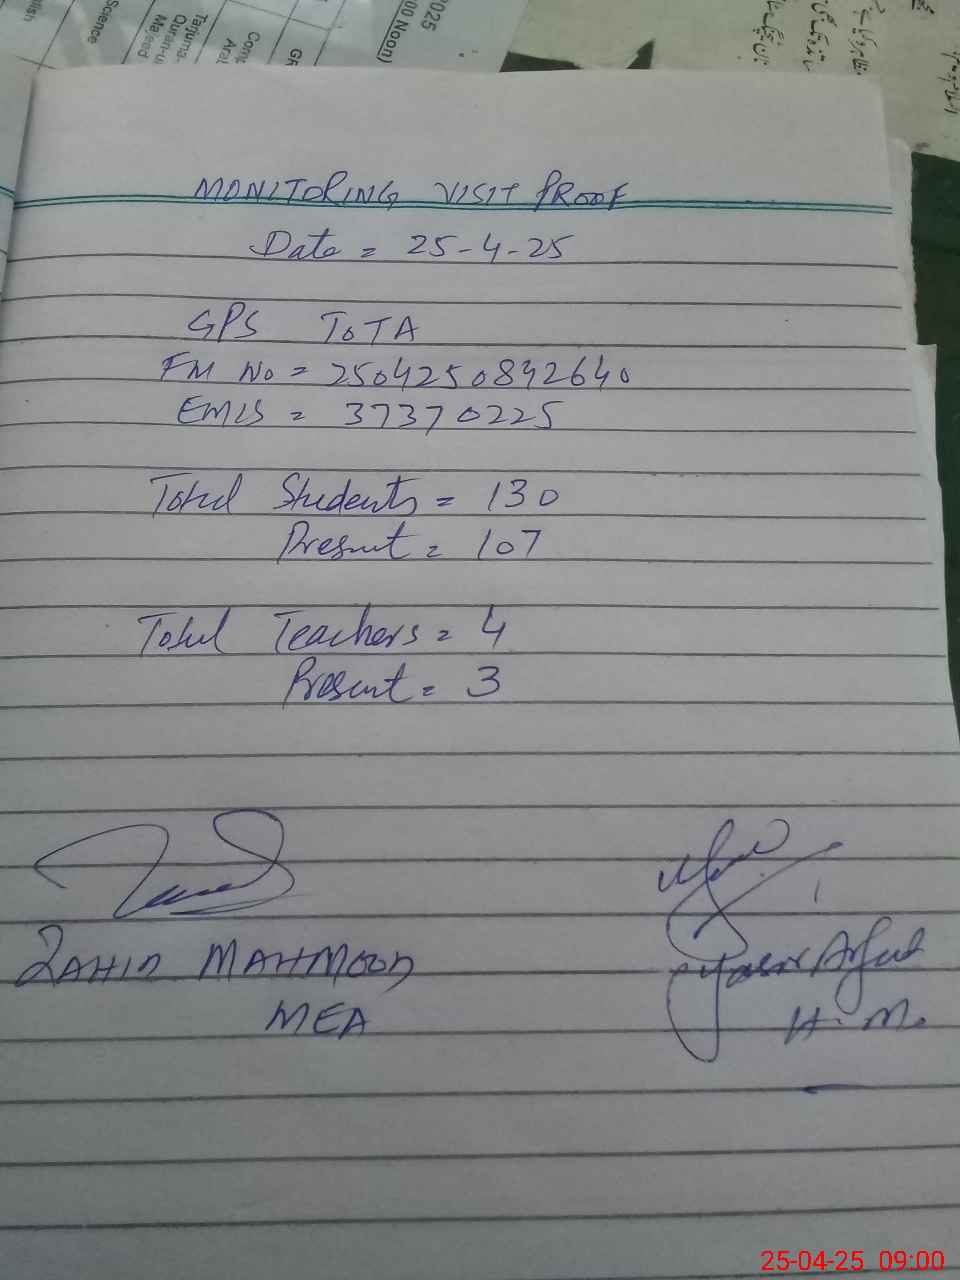 2025
00 Noon)
Science
Tarjuma-
Quran-u
Majeed
MONITORING VISIT PROOF
Date = 25-4-25
GPS TOTA
FM No = 2504250842640
EMIS = 37370225
Total Students = 130
Present = 107
Total Teachers = 4
Present = 3
ZAHID MAHMOOD
MEA
Yasir Arfat
H.M.
25-04-25 09:00